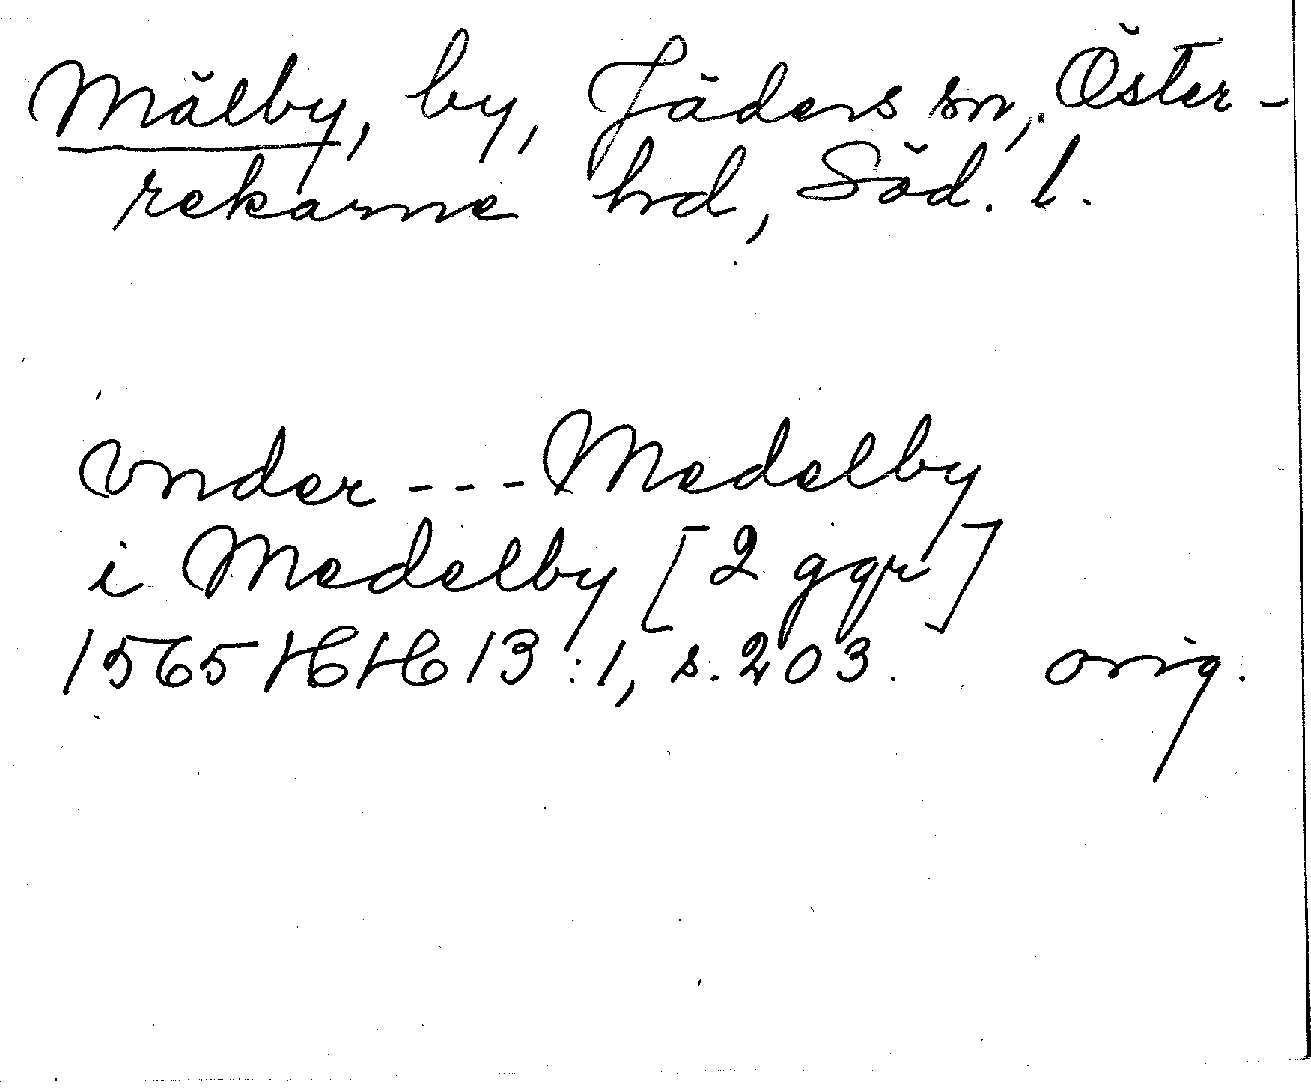 Mälby, by, Jäders sn, Öster-
rekarne hd, Söd. l.
vnder --- Medelby
i Medelby [2 ggr]
1565 HH 13:1, s. 203. orig.